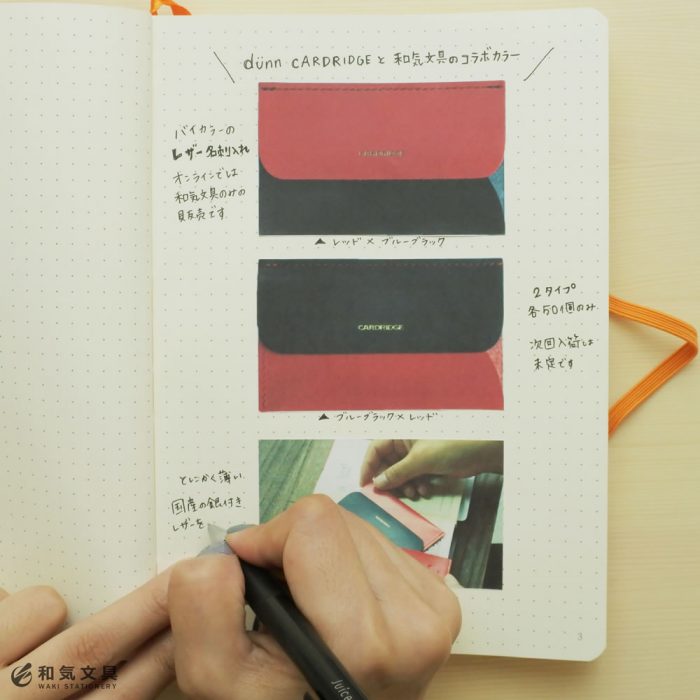 dünn CARDRIDGEと和気文具のコラボカラー
バイカラーの
レザー名刺入れ
オンラインでは
和気文具のみの
販売です
CARDRIDGE
▲ レッド×ブルーブラック
CARDRIDGE
▲ ブルーブラック×レッド
2タイプ
各50個のみ
次回入荷は
未定です
とにかく薄い
国産の銀付き
レザーを
Juice
3
和気文具
WAKI STATIONERY